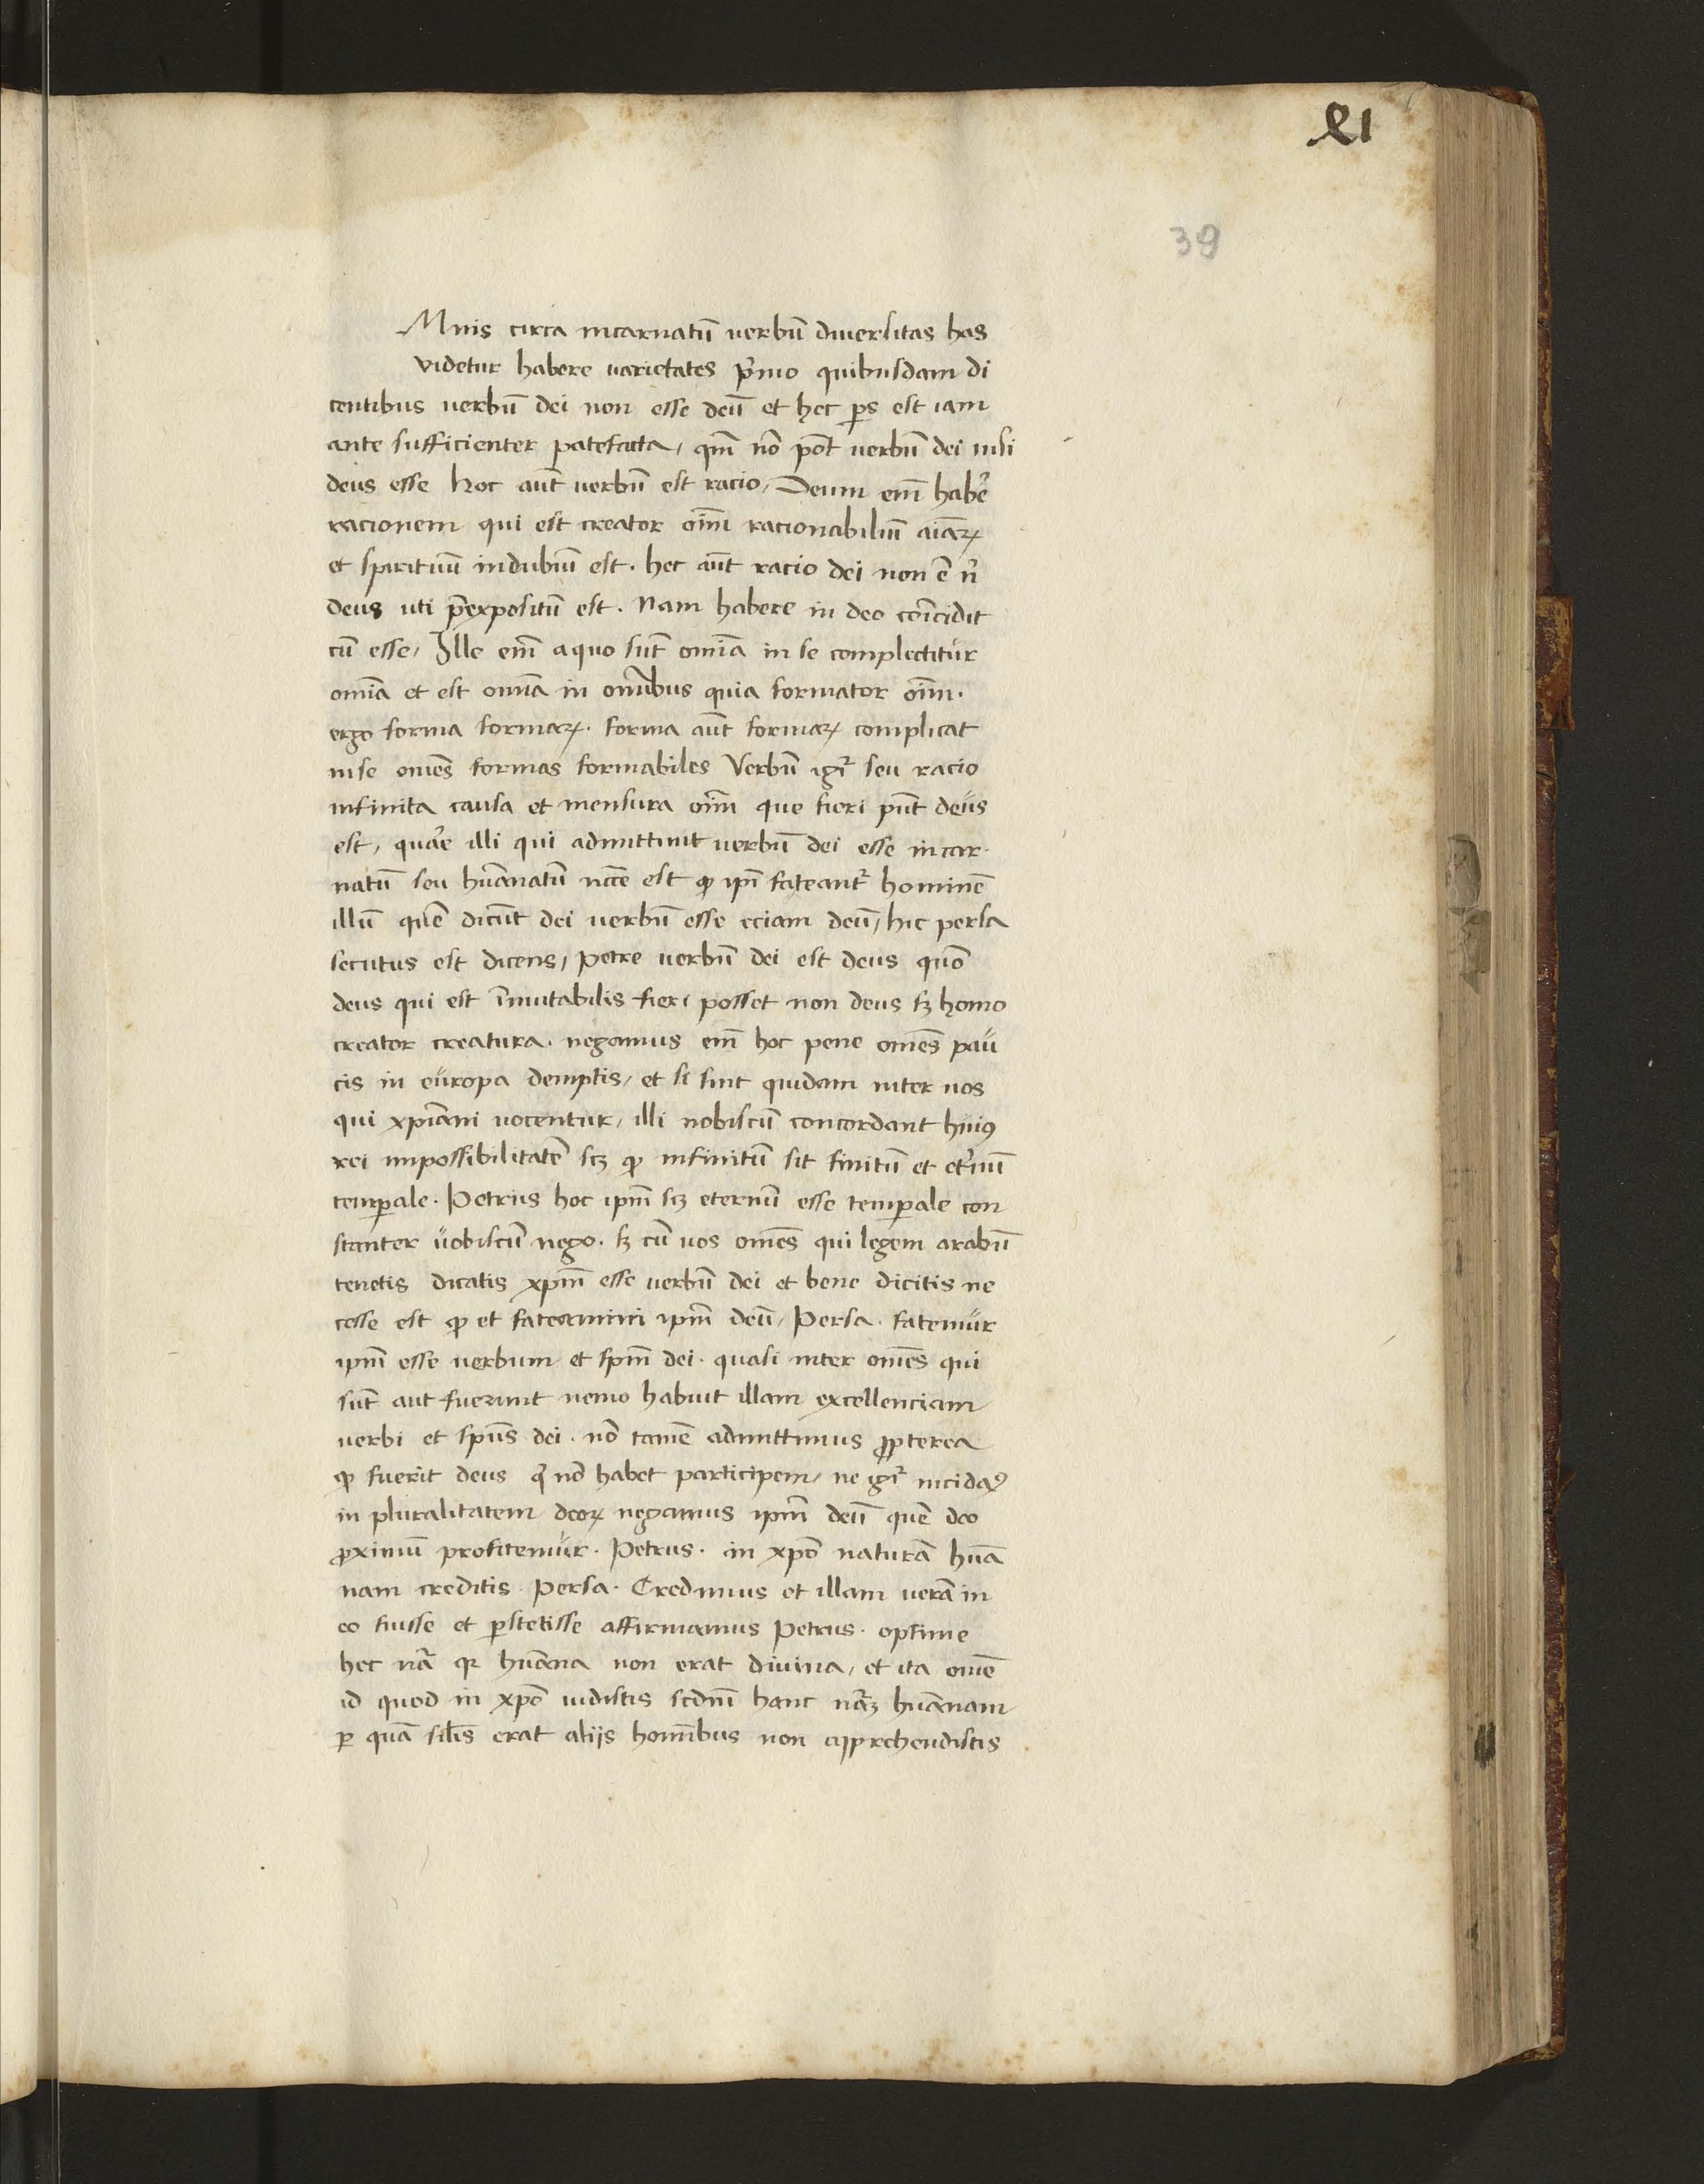 xli
39
Mnis circa incarnatū verbū diversitas has
videtur habere varietates p̄mo quibusdam di
centibus verbū dei non esse deū et hec ps̄ est iam
ante sufficienter patefacta, qm̄ nō pōt verbū dei nisi
deus esse Hoc aūt verbū est racio, Deum em̄ habēr
racionem qui est creator oīm racionabiliū aīaꝝ
et spirituū indubiū est. hec aūt racio dei non ē n̄
deus uti p̄expositū est. Nam habere in deo coīncidit
cū esse, Ille em̄ a quo sūt omīa in se complectitur
omīa et est omīa in omībus quia formator oīm.
ergo forma formaꝝ. forma aūt formaꝝ complicat
in se omēs formas formabiles Verbū igr̄ seu racio
infinita causa et mensura oīm que fieri pn̄t deus
est, quāe illi qui admittunt verbū dei esse incar-
natū seu hūanatū nc̄ce est ꝙ ipī fateantr̄ hominē
illū quē dicūt dei verbū esse eciam deū, hic persa
secutus est dicens, Petre verbū dei est deus quō
deus qui est īmutabilis fieri posset non deus sꝫ homo
creator creatura. negamus em̄ hoc pene omēs pau
cis in europa demptis, et si sint quidam inter nos
qui xpīani vocentur, illi nobiscū concordant huiꝰ
rei impossibilitatē scꝫ ꝙ infinitū sit finitū et et̄nū
temꝑale. Petrus hoc ipm̄ scꝫ eternū esse temꝑale con
stanter vobiscū nego. sꝫ cū vos omēs qui legem arabū
tenetis dicatis xpm̄ esse verbū dei et bene dicitis ne
cesse est ꝙ et fateamini ipm̄ deū, Persa. fatemur
ipm̄ esse verbum et spm̄ dei. quasi inter omēs qui
sūt aut fuerunt nemo habuit illam excellenciam
verbi et spūs dei. nō tamē admittimus ꝓpterea
ꝙ fuerit deus q̄ nō habet participem, ne igr̄ incidaꝰ
in pluralitatem deoꝝ negamus ipm̄ deū quē deo
ꝓximū profitemur. Petrus. in xpō naturā hūa
nam creditis. Persa. Credimus et illam verā in
eo fuisse et ꝑstetisse affirmamus Petrus. optime
hec nr̄a qr hūana non erat divina, et ita omē
id quod in xpō vidistis scdm̄ hanc nr̄aꝫ hūanam
ꝑ quā silīs erat aliis homībus non apprehendistis